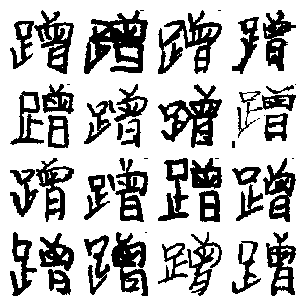 蹭蹭蹭蹭
蹭蹭蹭蹭
蹭蹭蹭蹭
蹭蹭蹭蹭